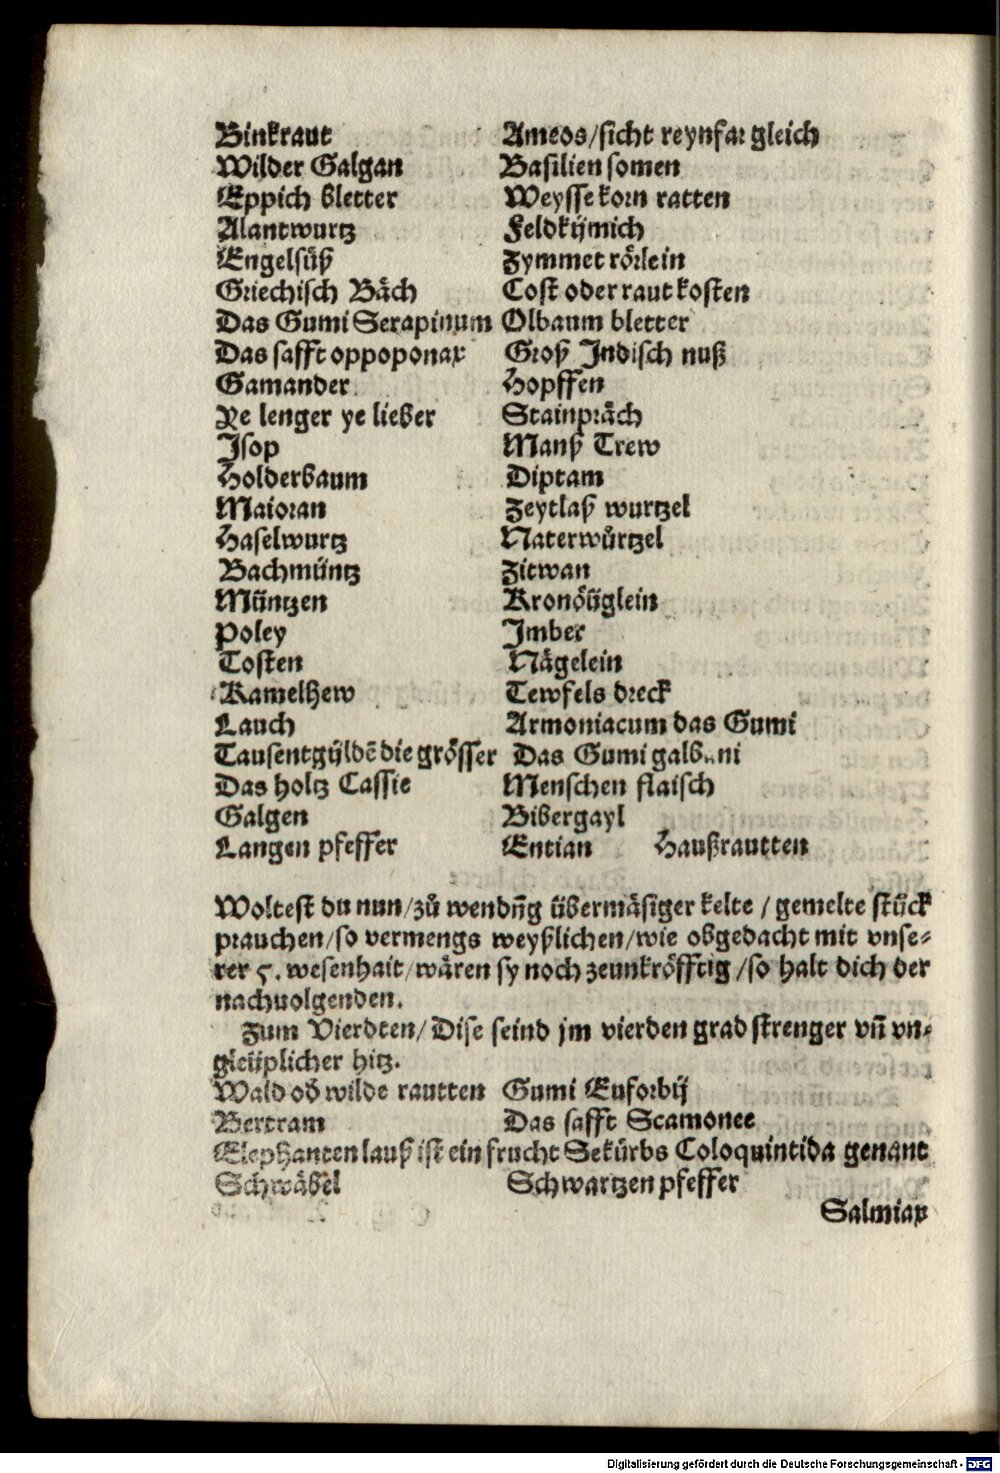 Binkraut Ameos/sicht reynfar gleich
Wilder Galgan Basilien somen
Eppich bletter Weysse korn ratten
Alantwurtz Feldkümich
Engelsüß Zymmet rörlein
Griechisch Bäch Cost oder raut kosten
Das Gumi Serapinum Olbaum bletter
Das safft oppoponax Groß Indisch nuß
Gamander Hopffen
Ye lenger ye lieber Stainpräch
Isop Manß Trew
Holderbaum Diptam
Maioran Zeytlaß wurtzel
Haselwurtz Naterwůrtzel
Bachmüntz Zitwan
Müntzen Kronöüglein
Poley Imber
Tosten Nägelein
Kamelhew Tewfels dreck
Lauch Armoniacum das Gumi
Tausentgüldē die grösser Das Gumi galbani
Das holtz Cassie Menschen flaisch
Galgen Bibergayl
Langen pfeffer Entian Haußrautten
Woltest du nun/zů wendn̄g übermäsiger kelte / gemelte stück
prauchen/so vermengs weyßlichen/wie obgedacht mit vnse-
rer 5. wesenhait/wären sy noch zeunkröfftig/so halt dich der
nachuolgenden.
Zum Vierdten/Dise seind jm vierden grad strenger vn̄ vn-
gleüplicher hitz.
Wald od̄ wilde rautten Gumi Euforbij
Bertram Das safft Scamonee
Elephanten lauß ist ein frucht Sekürbs Coloquintida genant
Schwäbel Schwartzen pfeffer
Salmiax
Digitalisierung gefördert durch die Deutsche Forschungsgemeinschaft - DFG